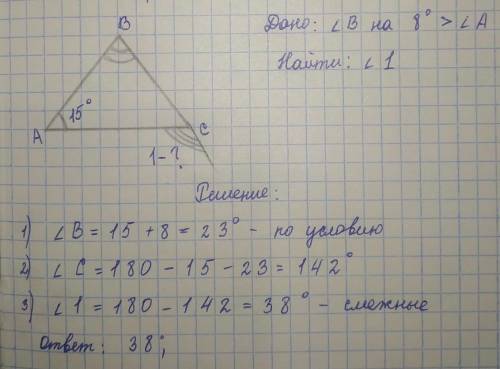 Дано: ∠B на 8° > ∠A
Найти: ∠1
B
15°
A
C
1-?
Решение:
1) ∠B = 15 + 8 = 23° - по условию
2) ∠C = 180 - 15 - 23 = 142°
3) ∠1 = 180 - 142 = 38° - смежные
Ответ: 38°;